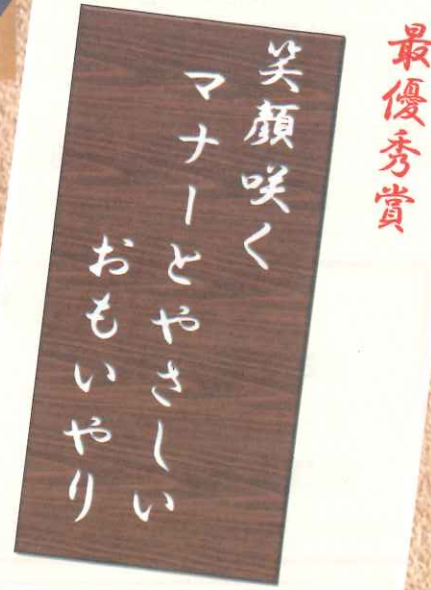 最優秀賞
笑顔咲く
マナーとやさしい
おもいやり